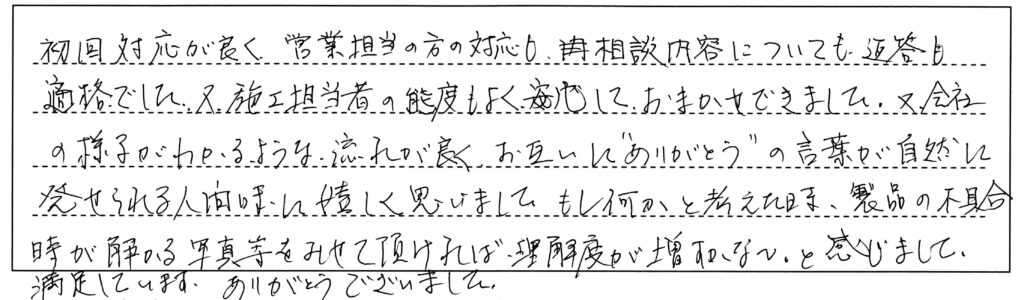 初回対応が良く、営業担当の方の対応も、再相談内容についても返答も
適格でした。又、施工担当者の態度もよく、安心して、おまかせできました。又、会社
の様子がわかるような、流れが良く、お互いに"ありがとう"の言葉が自然に
発せられる人間味に嬉しく思いました。もし何かと考えた時、製品の不具合
時が解かる写真等をみせて頂ければ、理解度が増すかな〜。と感じました。
満足しています。ありがとうございました。